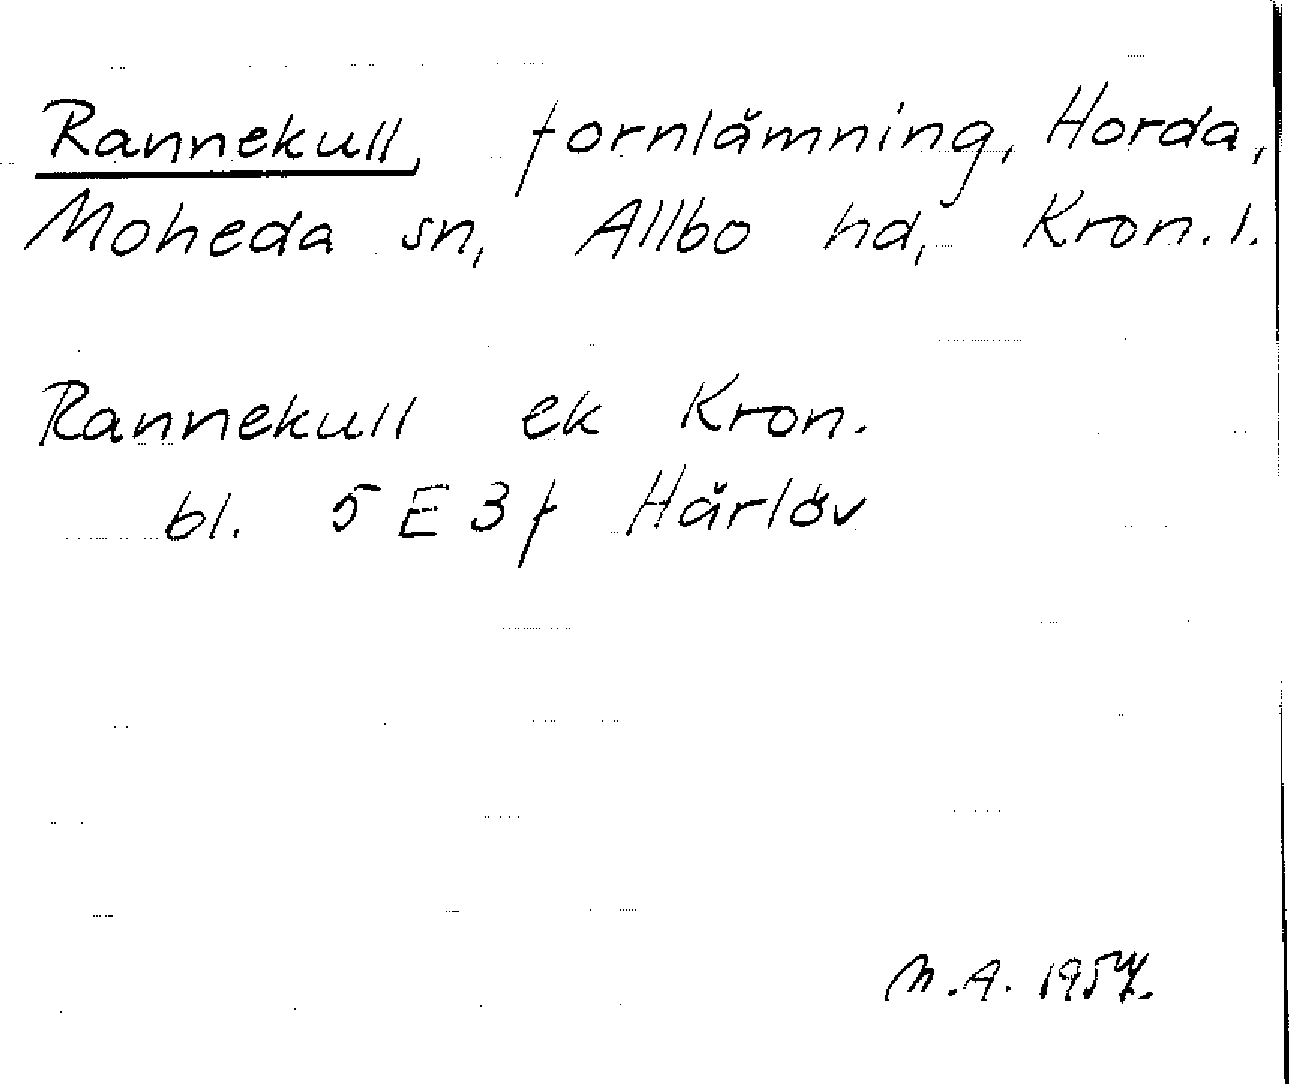 Rannekull, fornlämning, Horda,
Moheda sn, Allbo hd, Kron. l.
Rannekull ek Kron.
bl. 5 E 3 f Härlöv
M.A. 1957.